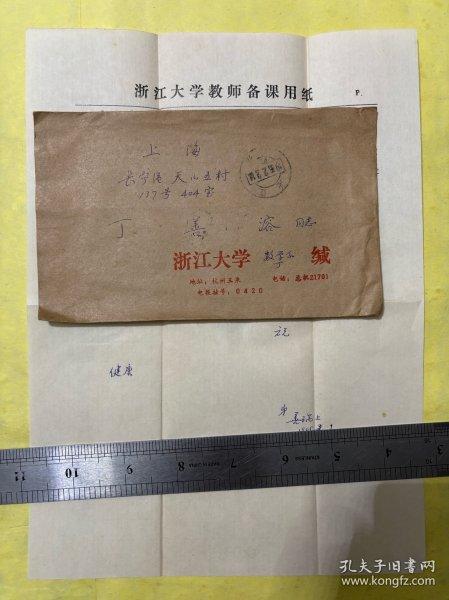 浙江大学教师备课用纸 P.
上海
长宁区 天山五村
137号 404室
丁善溶 同志
浙江大学 数学系 缄
地址：杭州玉泉 电话：总机21701
电报挂号：0420
祝
健康
弟
上
STAINLESS
11 10 9 8 7 6 5 4 3
孔夫子旧书网
www.kongfz.com